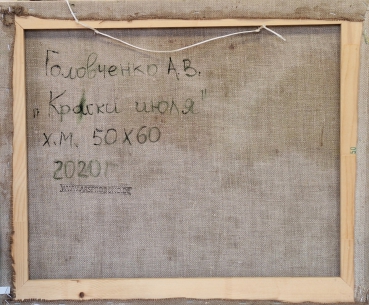 Головченко А.В.
„Краски июля"
х.м. 50х60
2020г
50